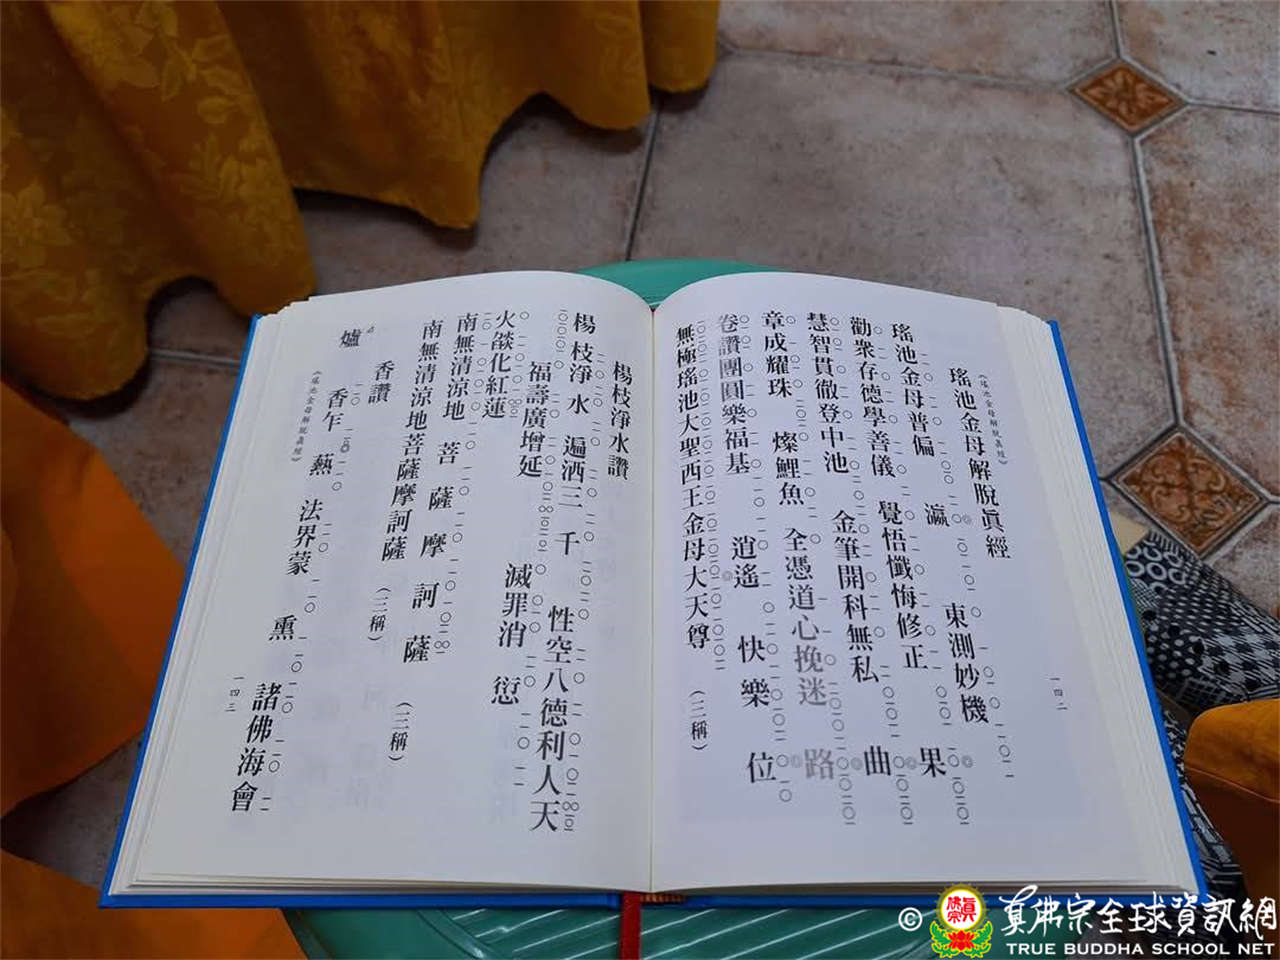 《瑤池金母解脫真經》
瑤池金母解脫眞經
瑤池金母普偏 瀛 東測妙機 果
勸衆存德學善儀 覺悟懺悔修正 曲
慧智貫徹登中池 金筆開科無私
章成耀珠 燦鯉魚 全憑道心挽迷 路
卷讚團圓樂福基 逍遙 快樂 位
無極瑤池大聖西王金母大天尊 (三稱)
一四二
楊枝淨水讚
楊枝淨水 遍洒三千 性空八德利人天
福壽廣增延 滅罪消 愆
火燄化紅蓮
南無清涼地 菩 薩 摩 訶 薩
南無清涼地菩薩摩訶薩 (三稱)
香讚
爐 香乍 爇 法界蒙 熏 諸佛海會
《瑤池金母解脫真經》
一四三
© 真佛宗全球資訊網
TRUE BUDDHA SCHOOL NET